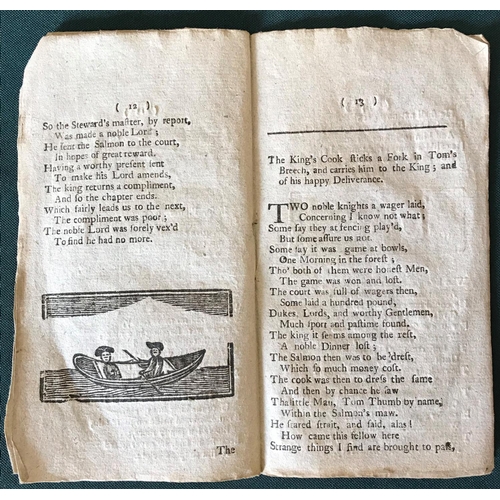 ( 12 )
So the Steward's maſter, by report,
Was made a noble Lord ;
He ſent the Salmon to the court,
In hopes of great reward.
Having a worthy preſent ſent
To make his Lord amends,
The king returns a compliment,
And ſo the chapter ends.
Which fairly leads us to the next,
The compliment was poor ;
The noble Lord was ſorely vex'd
To find he had no more.
The
( 13 )
The King's Cook ſticks a Fork in Tom's
Breech, and carries him to the King ; and
of his happy Deliverance.
TWO noble knights a wager laid,
Concerning I know not what ;
Some ſay they at fencing play'd,
But ſome aſſure us not.
Some ſay it was game at bowls,
One Morning in the foreſt ;
Tho' both of them were honeſt Men,
The game was won and loſt.
The court was full of wagers then,
Some laid a hundred pound,
Dukes, Lords, and worthy Gentlemen,
Much ſport and paſtime found.
The king it ſeems among the reſt,
A noble Dinner loſt ;
The Salmon then was to be dreſt,
Which ſo much money coſt.
The cook was then to dreſs the ſame
And then by chance he ſaw
Thalittle Man, Tom Thumb by name,
Within the Salmon's maw.
He ſtared ſtrait, and ſaid, alas !
How came this fellow here
Strange things I find are brought to paſs,